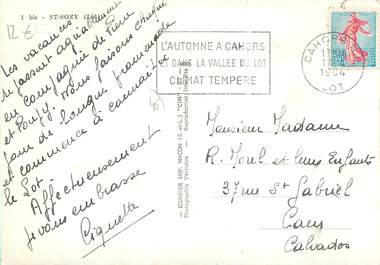 1 bis - ST-SOZY (Lot)
12 €
Les vacances
se passent agréablement
en compagnie de Pierre
et Nous faisons chaque
jour de longues promenades
et commence à connaître
le Lot.
Affectueusement
je vous embrasse
Ciquette
COMBIER IMP. MACON (S.-et-L.) "CIM"
Photographie Véritable - Reproduction Interdite
L'AUTOMNE A CAHORS
ET DANS LA VALLEE DU LOT
CLIMAT TEMPERE
CAHORS
1964
LOT
Monsieur Madame
R. et leurs Enfants
37 rue St Gabriel
Caen
Calvados